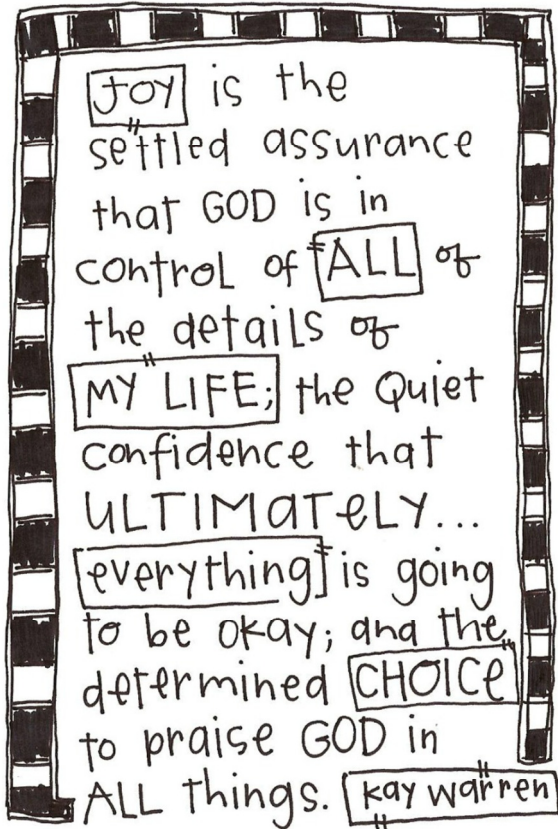 JOY is the
settled assurance
that GOD is in
control of ALL of
the details of
MY LIFE; the Quiet
confidence that
ULTIMaTeLY...
everything is going
to be okay; and the
determined CHOICe
to praise GOD in
ALL things. kay warren